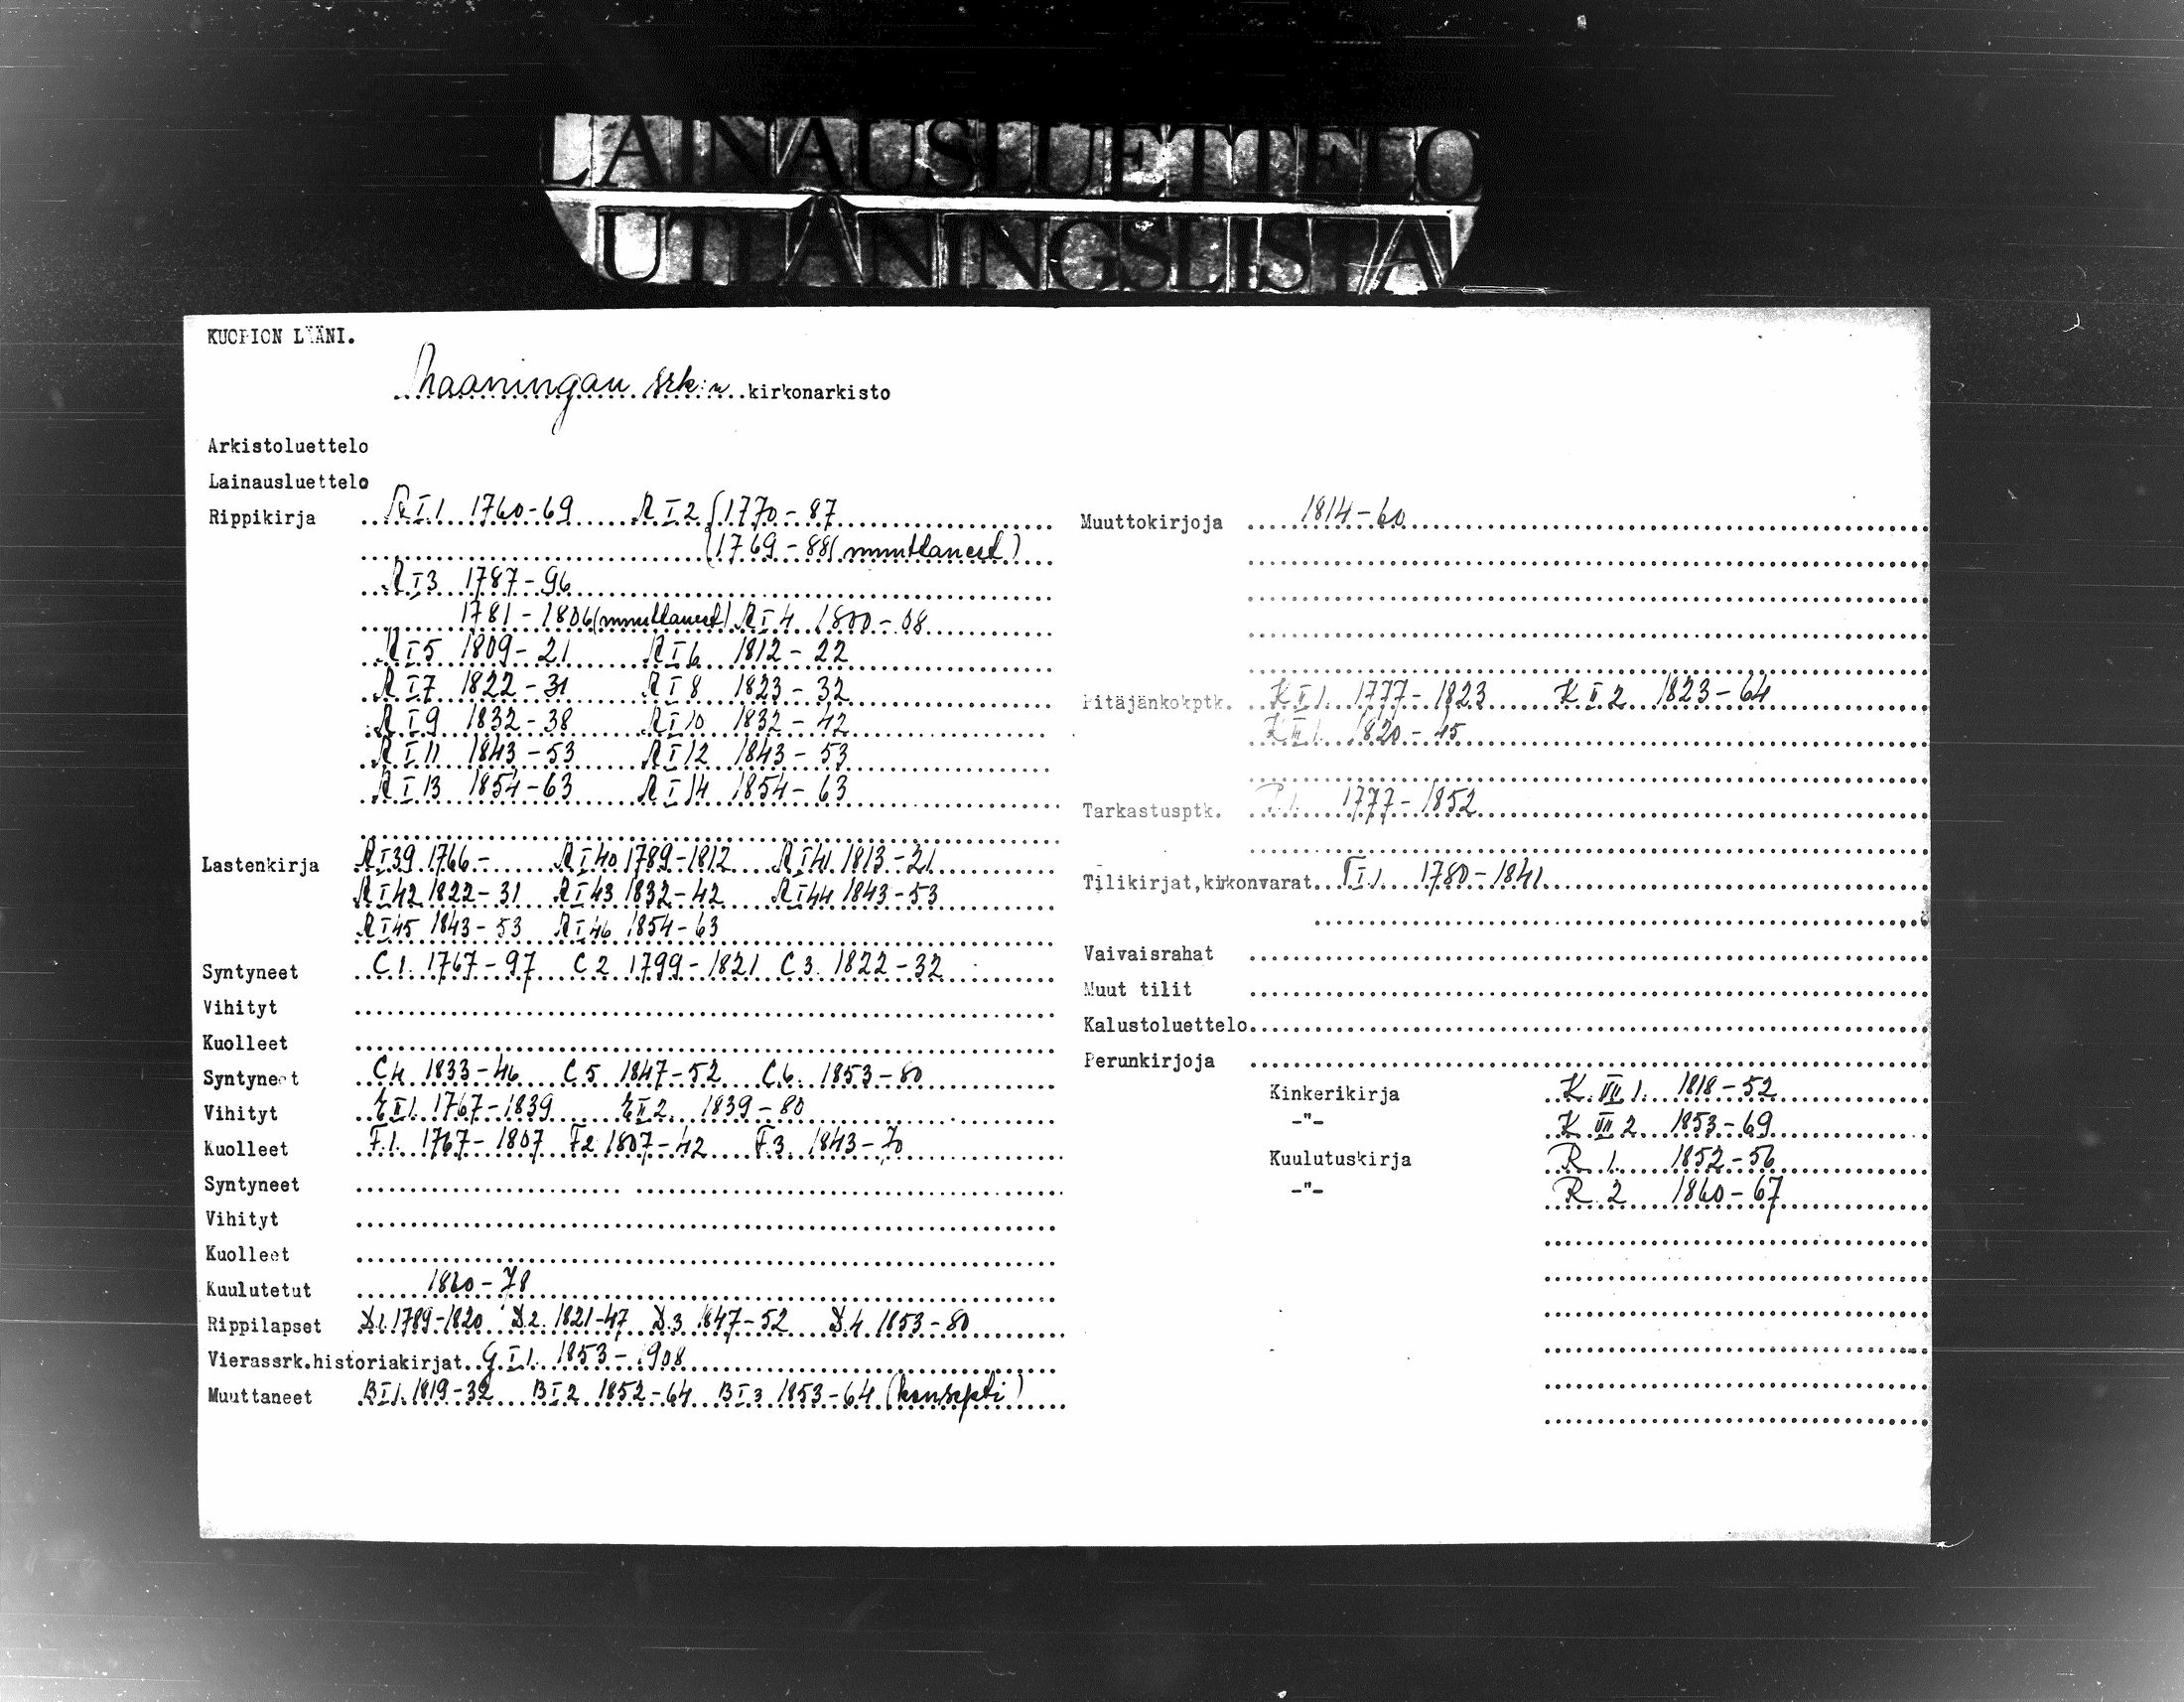 LAINAUSLUETTELO
UTLÅNINGSLISTA
KUOPION LÄÄNI.
Maaningan srk:n kirkonarkisto
Arkistoluettelo
Lainausluettelo
Rippikirja RI1 1760-69 RI2 1770-87
1769-88 (muuttaneet)
RI3 1787-96
1781-1806 (muuttaneet) RI4 1800-08
RI5 1809-21 RI6 1812-22
RI7 1822-31 RI8 1823-32
RI9 1832-38 RI10 1832-42
RI11 1843-53 RI12 1843-53
RI13 1854-63 RI14 1854-63
Lastenkirja RI39 1766- RI40 1789-1812 RI41 1813-21
RI42 1822-31 RI43 1832-42 RI44 1843-53
RI45 1843-53 RI46 1854-63
Syntyneet C1. 1767-97 C2 1799-1821 C3. 1822-32
Vihityt
Kuolleet
Syntyneet C4 1833-46 C5 1847-52 C6. 1853-80
Vihityt EII1. 1767-1839 EII2. 1839-80
Kuolleet F.1. 1767-1807 F2 1807-42 F.3. 1843-70
Syntyneet
Vihityt
Kuolleet
Kuulutetut 1860-78
Rippilapset D.1. 1789-1820 D.2. 1821-47 D.3 1847-52 D.4. 1853-80
Vierassrk.historiakirjat GI1. 1853-1908
Muuttaneet BI1. 1819-32 BI2 1852-64 BI3 1853-64 (konsepti)
Muuttokirjoja 1814-60
Pitäjänkokptk. KI1. 1777-1823 KI2 1823-64
KIII1. 1820-45
Tarkastusptk. 1777-1852
Tilikirjat,kirkonvarat TI1 1780-1841
Vaivaisrahat
Muut tilit
Kalustoluettelo
Perunkirjoja
Kinkerikirja K VII 1. 1818-52
-"- K VII 2 1853-69
Kuulutuskirja R 1. 1852-56
-"- R 2 1860-67